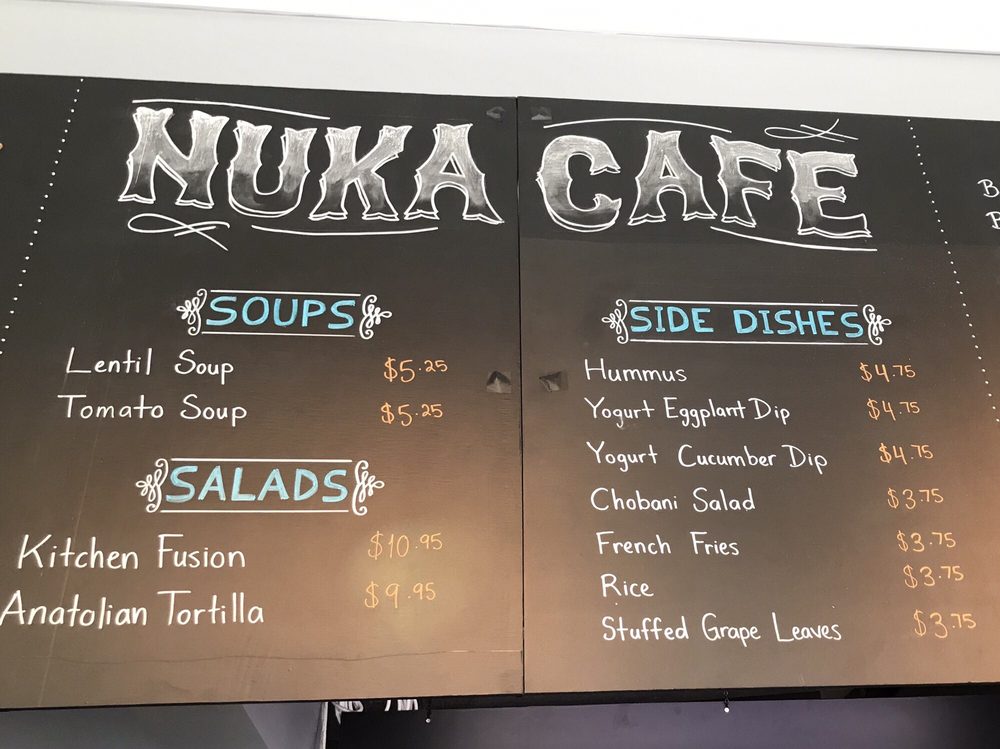 NUKA CAFE
SOUPS
Lentil Soup $5.25
Tomato Soup $5.25
SALADS
Kitchen Fusion $10.95
Anatolian Tortilla $9.95
SIDE DISHES
Hummus $4.75
Yogurt Eggplant Dip $4.75
Yogurt Cucumber Dip $4.75
Chobani Salad $3.75
French Fries $3.75
Rice $3.75
Stuffed Grape Leaves $3.75